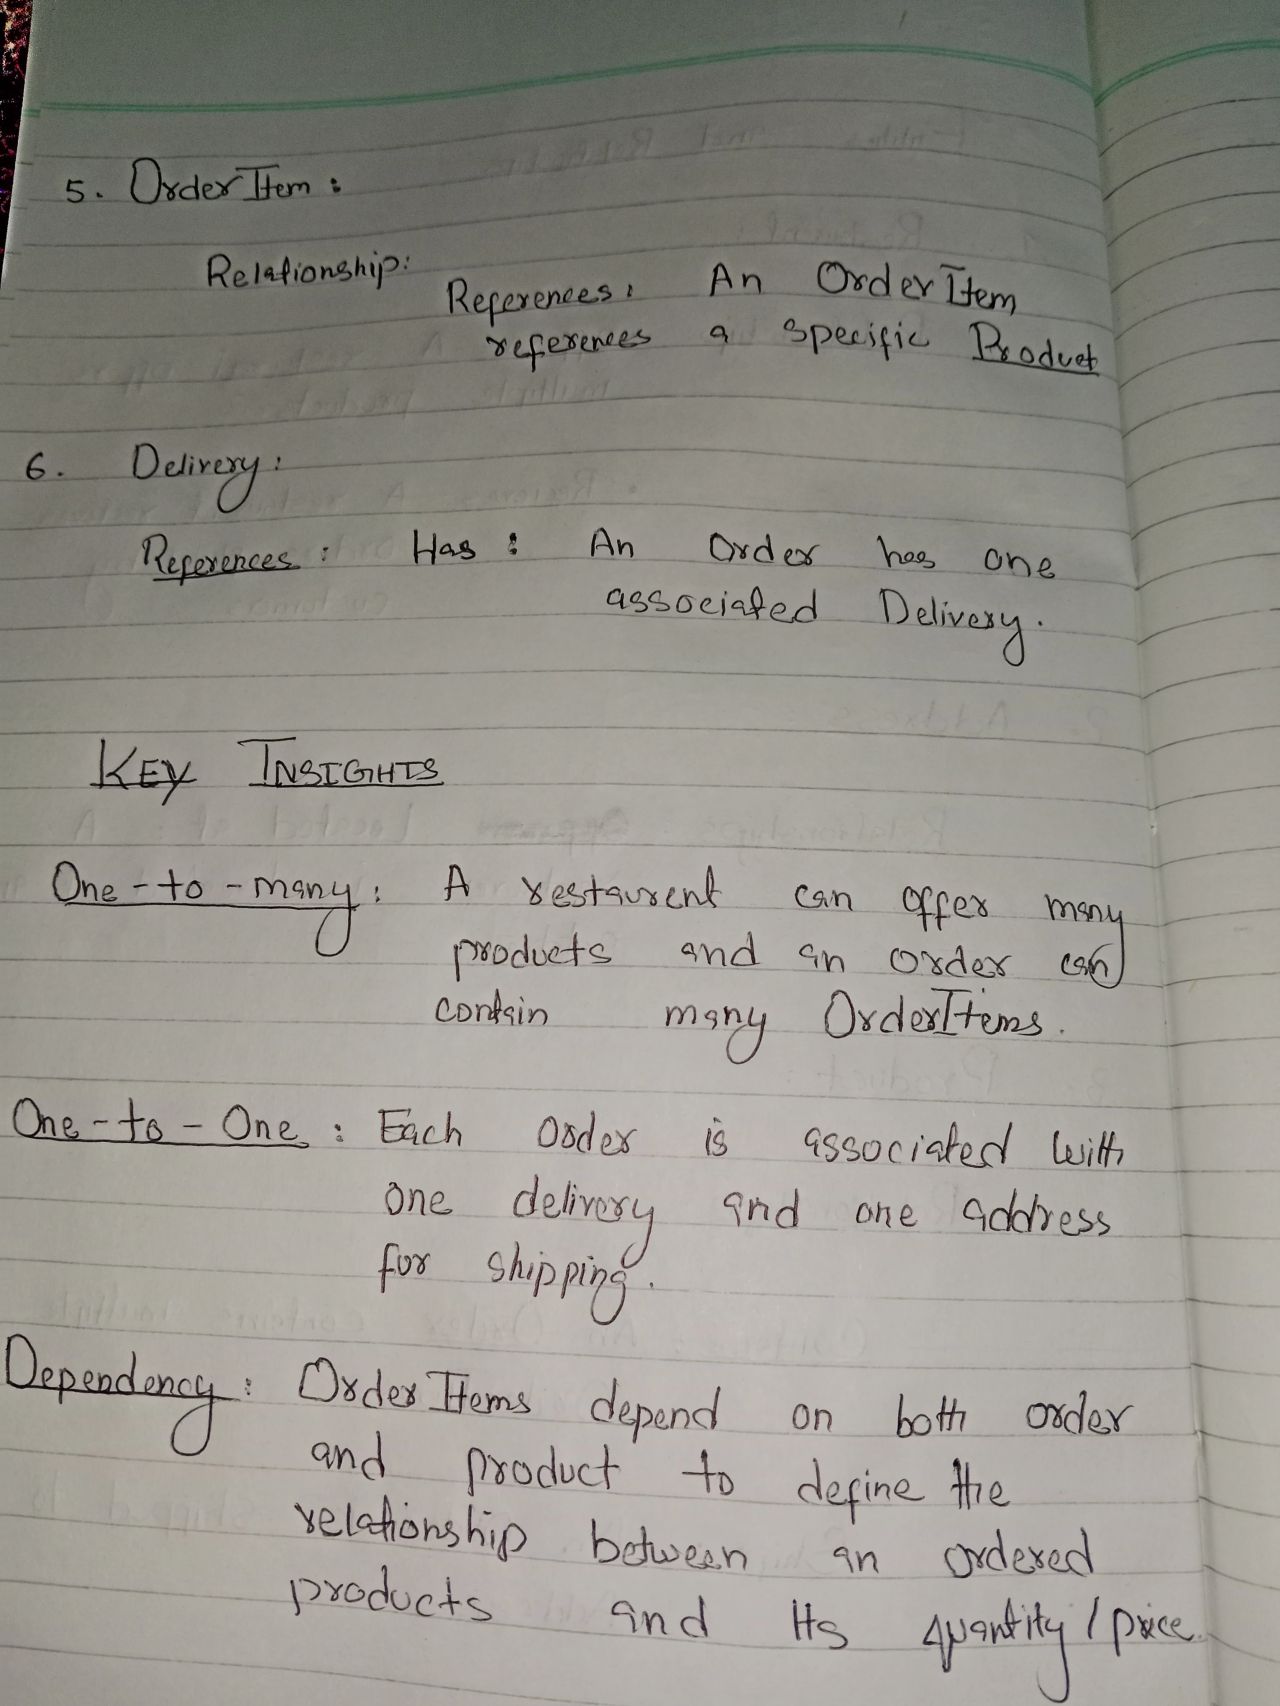 5. OrderItem :
Relationship:
References: An OrderItem
references a specific Product
6. Delivery:
References : Has : An Order has one
associated Delivery.
KEY INSIGHTS
One-to-many: A restaurent can offer many
products and an order can
contain many OrderItems.
One-to-One : Each order is associated with
one delivery and one address
for shipping.
Dependency: OrderItems depend on both order
and product to define the
relationship between an ordered
products and its quantity/price.